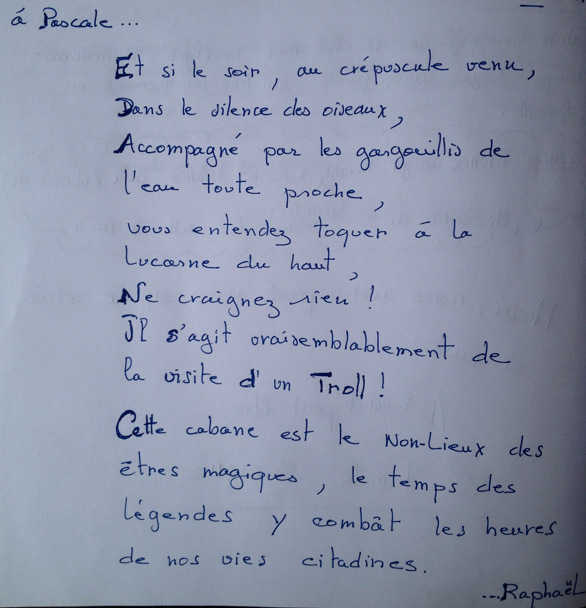 á Pascale...
Et si le soir, au crépuscule venu,
Dans le silence des oiseaux,
Accompagné par les gargouillis de
l'eau toute proche,
vous entendez toquer á la
Lucarne du haut,
Ne craignez rien !
Il s'agit vraisemblablement de
la visite d'un Troll !
Cette cabane est le Non-Lieux des
êtres magiques, le temps des
légendes y combât les heures
de nos vies citadines.
...Raphaël